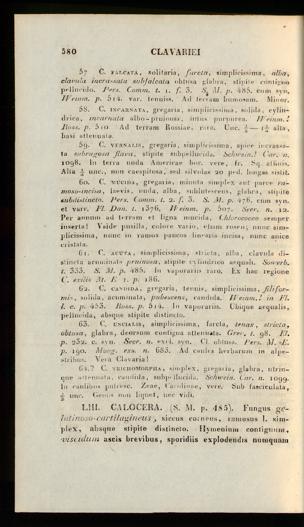 580 CLAVARIEI
57 C. FALCATA, solitaria, farcta, simplicissima, alba,
clavula incrassata subfalcata obtusa glabra, stipite contiguo
pellucido. Pers. Comm. t. 1. f. 3. S. M. p. 485. cum syn.
Weinm. p. 514. var. tenuis. Ad terram humosam. Minor.
58. C. INCARNATA, gregaria, simplicissima, solida, cylin-
drica, incarnata albo-pruinosa, intus purpurea. Weinm.!
Ross. p. 510 Ad terram Rossiae, raro. Unc. alta,
basi attenuata.
59. C. VERNALIS, gregaria, simplicissima, apice incrassa-
ta subrugosa flava, stipite subpellucida. Schwein.! Car. n.
1098. In terra nuda Americae bor. vere, Fr. Sq. affinis.
Alta ½ unc., non caespitosa, sed silvulas 20 ped. longas sistit.
60. C. MUCIDA, gregaria, minuta simplex aut parce ra-
moso-incisa, laevis, nuda, alba, sublutescens, glabra, stipite
subdistincto. Pers. Comm. t. 2. f. 3. S. M. p. 476. cum syn.
et varr. Fl. Dan. t. 1376. Weinm. p. 507. Secr. n. 12.
Per annum ad terram et ligna mucida, Chlorococco semper
inserta! Valde pusilla, colore vario, etiam roseo; nunc sim-
plicissima, nunc in ramos paucos linearis incisa, nunc apice
cristata.
61. C. ACUTA, simplicissima, stricta, alba, clavula di-
stincta acuminata pruinosa, stipite cylindrico aequali. Sowerb.
t. 333. S. M. p. 485. In vaporariis raro. Ex hac regione
C. exilis Ej. p. 186.
62. C. CANDIDA, gregaria, tenuis, simplicissima, filifor-
mis, solida, acuminata, pubescens, candida. Weinm.! in Fl.
l. c. p. 453. Ross. p. 512. In vaporariis. Ubique aequalis,
pellucida, absque stipite distincto.
63. C. UNCIALIS, simplicissima, farcta, tenax, stricta,
obtusa, glabra, deorsum contigua attenuata. Grev. t. 98. Fl.
p. 232. c. syn. Secr. n. excl. syn. Cl. obtusa. Pers. M. E.
p. 190. Moug. exs. n. 683. Ad caules herbarum in alpe-
stribus. Vera Clavaria!
64.? C. TRICHOMORPHA, simplex, gregaria, glabra, utrin-
que attenuata, candida, subpellucida. Schwein. Car. n. 1099.
In caulibus putresc. Zeae, Carolinae, vere. Sub fasciculata,
unc. Genus non liquet, nec vidi.
LIII. CALOCERA. (S. M. p. 485). Fungus ge-
latinoso-cartilagineus, siccus corneus, ramosus l. sim-
plex, absque stipite distincto. Hymenium contiguum,
viscidum ascis brevibus, sporidiis explodendis nunquam